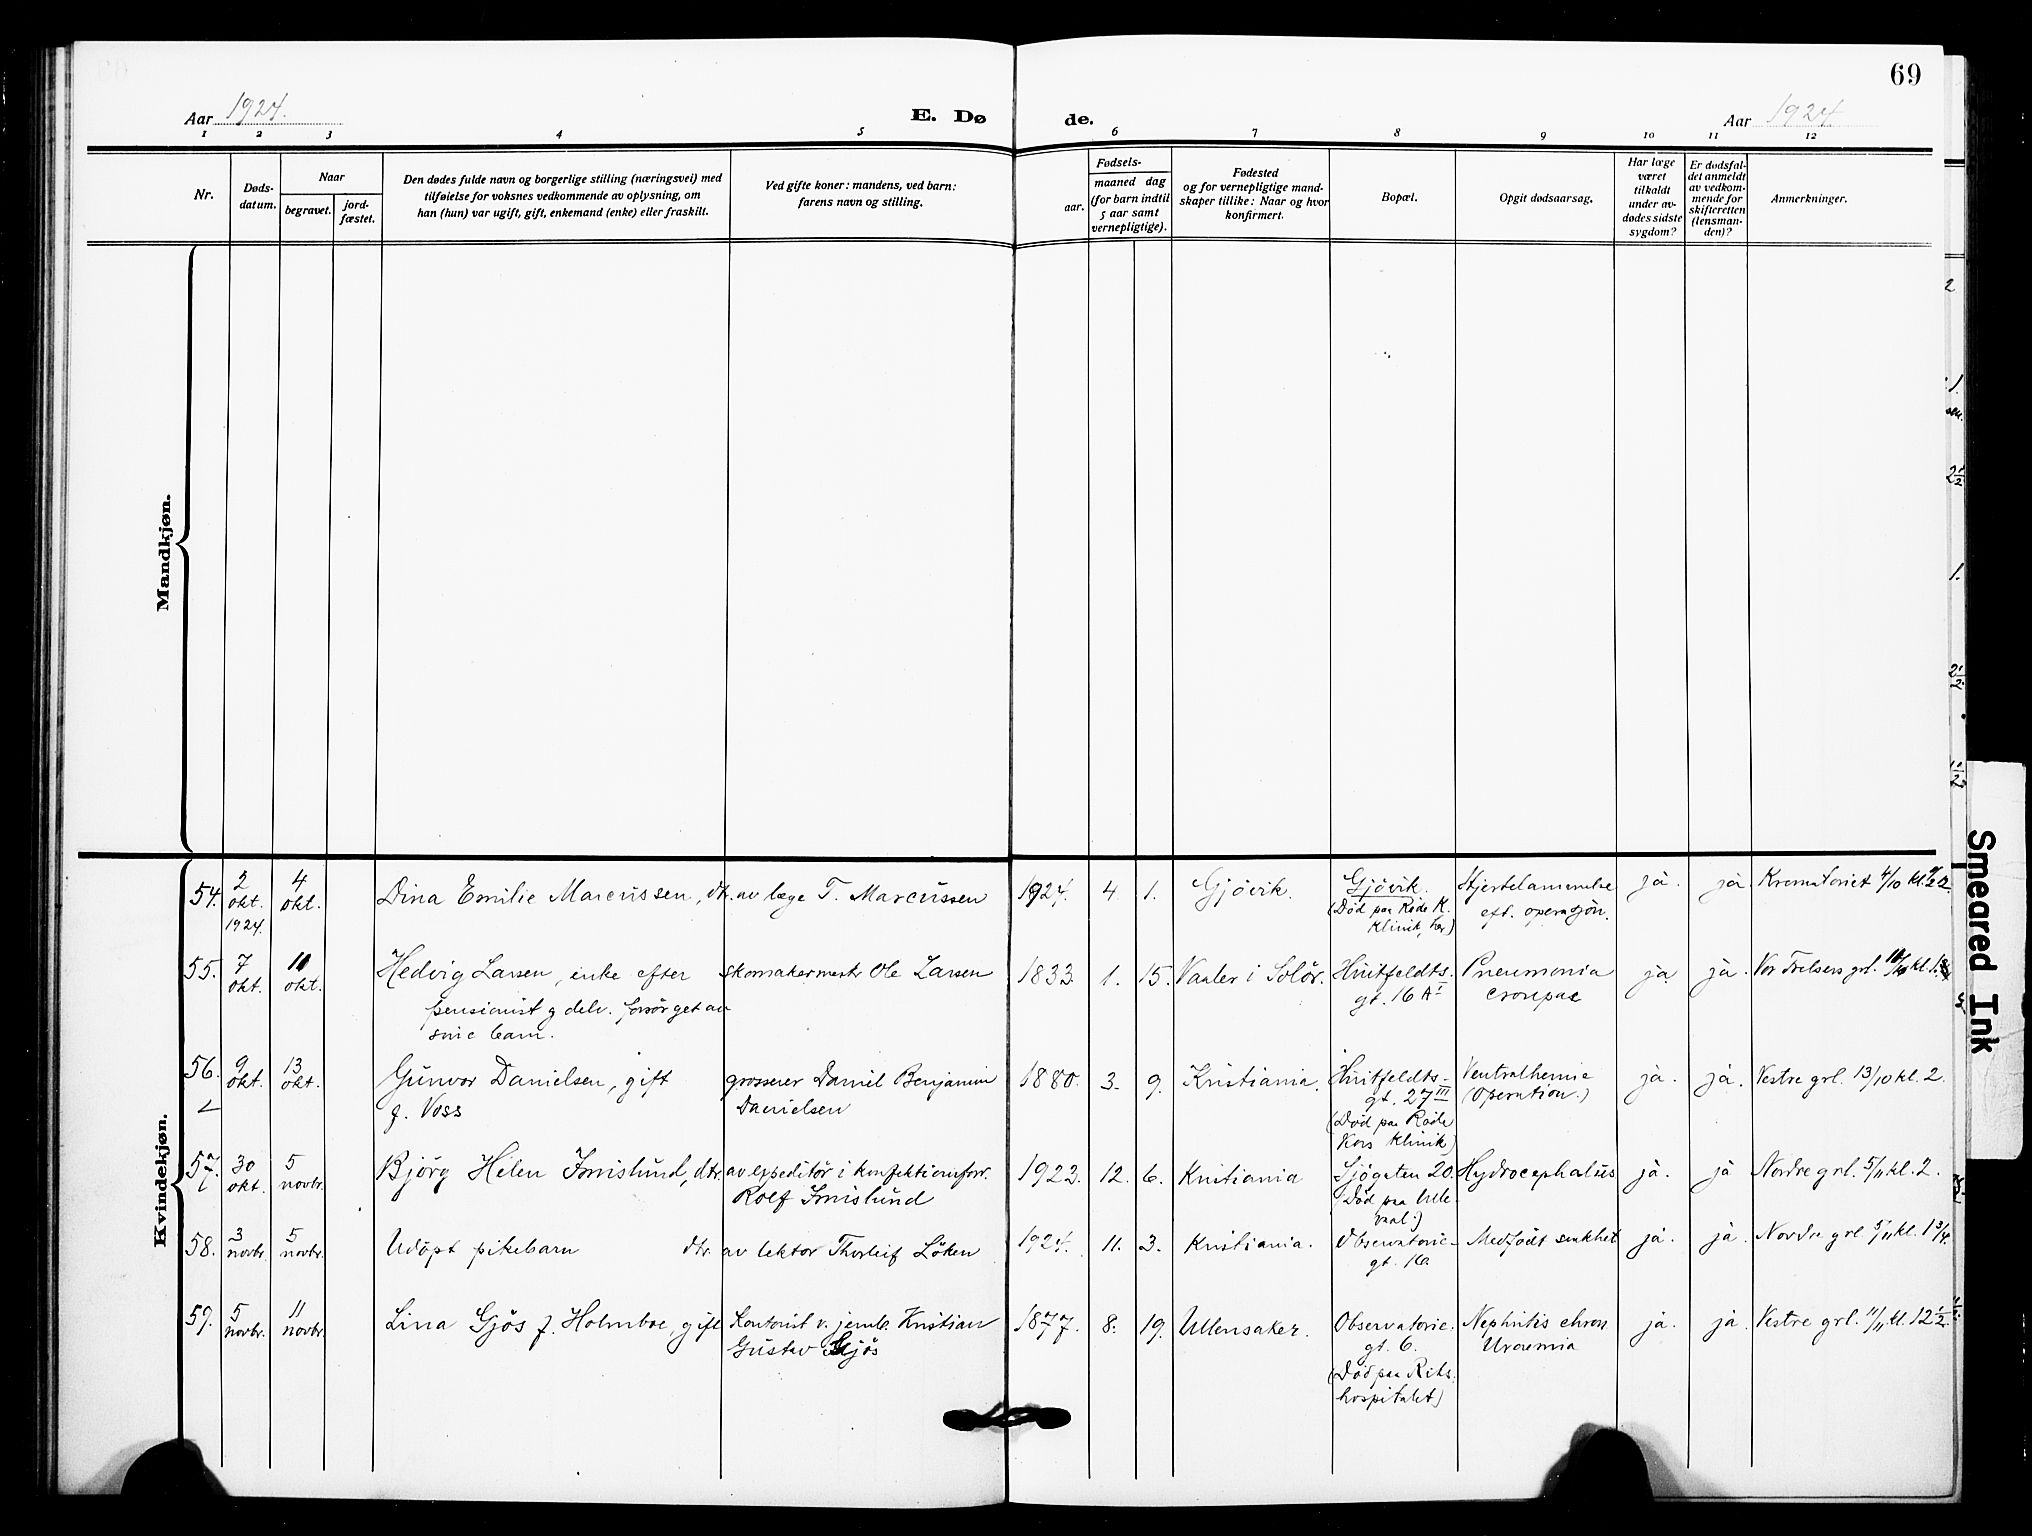 69
Aar 1924.
E. Dø
de.
Aar 1924
1 2 3 4 5 6 7 8 9 10 11 12
Nr.
Døds-
datum.
Naar
begravet.
jord-
fæstet.
Den dødes fulde navn og borgerlige stilling (næringsvei) med
tilføielse for voksnes vedkommende av oplysning, om
han (hun) var ugift, gift, enkemand (enke) eller fraskilt.
Ved gifte koner: mandens, ved barn:
farens navn og stilling.
Fødsels-
aar.
maaned dag
(for barn indtil
5 aar samt
vernepligtige).
Fødested
og for vernepligtige mand-
skaper tillike: Naar og hvor
konfirmert.
Bopæl.
Opgit dødsaarsag.
Har læge
været
tilkaldt
under av-
dødes sidste
sygdom?
Er dødsfal-
det anmeldt
av vedkom-
mende for
skifteretten
(lensman-
den)?
Anmerkninger.
Mandkjøn.
Kvindekjøn.
54.
2
okt.
1924.
4
okt.
Dina Emilie Marcussen, dtr.
av læge T. Marcussen
1924. 4. 1.
Gjövik.
Gjövik.
(Död paa Röde K.
Klinik, her)
Hjertelammelse
eft. operasjön.
ja.
ja
Krematoriet 4/10 kl.
55.
7
okt.
11
okt.
Hedvig Larsen, enke efter
pensionist g delv. forsörget av
sine barn.
skomakermestr Ole Larsen
1833. 1. 15.
Vaaler i Solör.
Huitfeldts-
gt. 16 A I
Pneumonia
crouposa
ja
ja.
Vor Frelsers grl. 11/10 kl. 1.
56.
9
okt.
13
okt.
Gunvor Danielsen, gift
f. Voss
grosserer Daniel Benjamin
Danielsen
1880. 3. 9.
Kristiania.
Huitfeldts-
gt. 27 III
(Död paa Röde
Kors Klinik)
Ventralhernie
(Operation.)
ja.
ja.
Vestre grl. 13/10 kl. 2.
57.
30
okt.
5
novbr.
Björg Helen Imislund, dtr.
av expeditör i konfektionsforr.
Rolf Imislund
1923. 12. 6.
Kristiania
Sjögaten 20.
(Död paa Ulle-
vaal.)
Hydrocephalus
ja.
ja
Nordre grl. 5/11 kl. 2.
58.
3
novbr.
5
novbr.
Udöpt pikebarn dtr.
av lektor Thorleif Löken
1924. 11. 3.
Kristiania.
Observatorie-
gt. 10.
Medfödt svakhet
ja.
ja.
Nordre grl. 5/11 kl. 1 3/4.
59.
5
novbr.
11
novbr.
Lina Gjös f. Holmboe, gift
Kontorist v. jernb. Kristian
Gustav Gjös
1877. 8. 19.
Ullensaker.
Observatorie-
gt. 6.
(Död paa Riks-
hospitalet)
Nephritis chron
Uraemia
ja.
ja.
Vestre grl. 11/11 kl. 12 1/2.
Smeared Ink